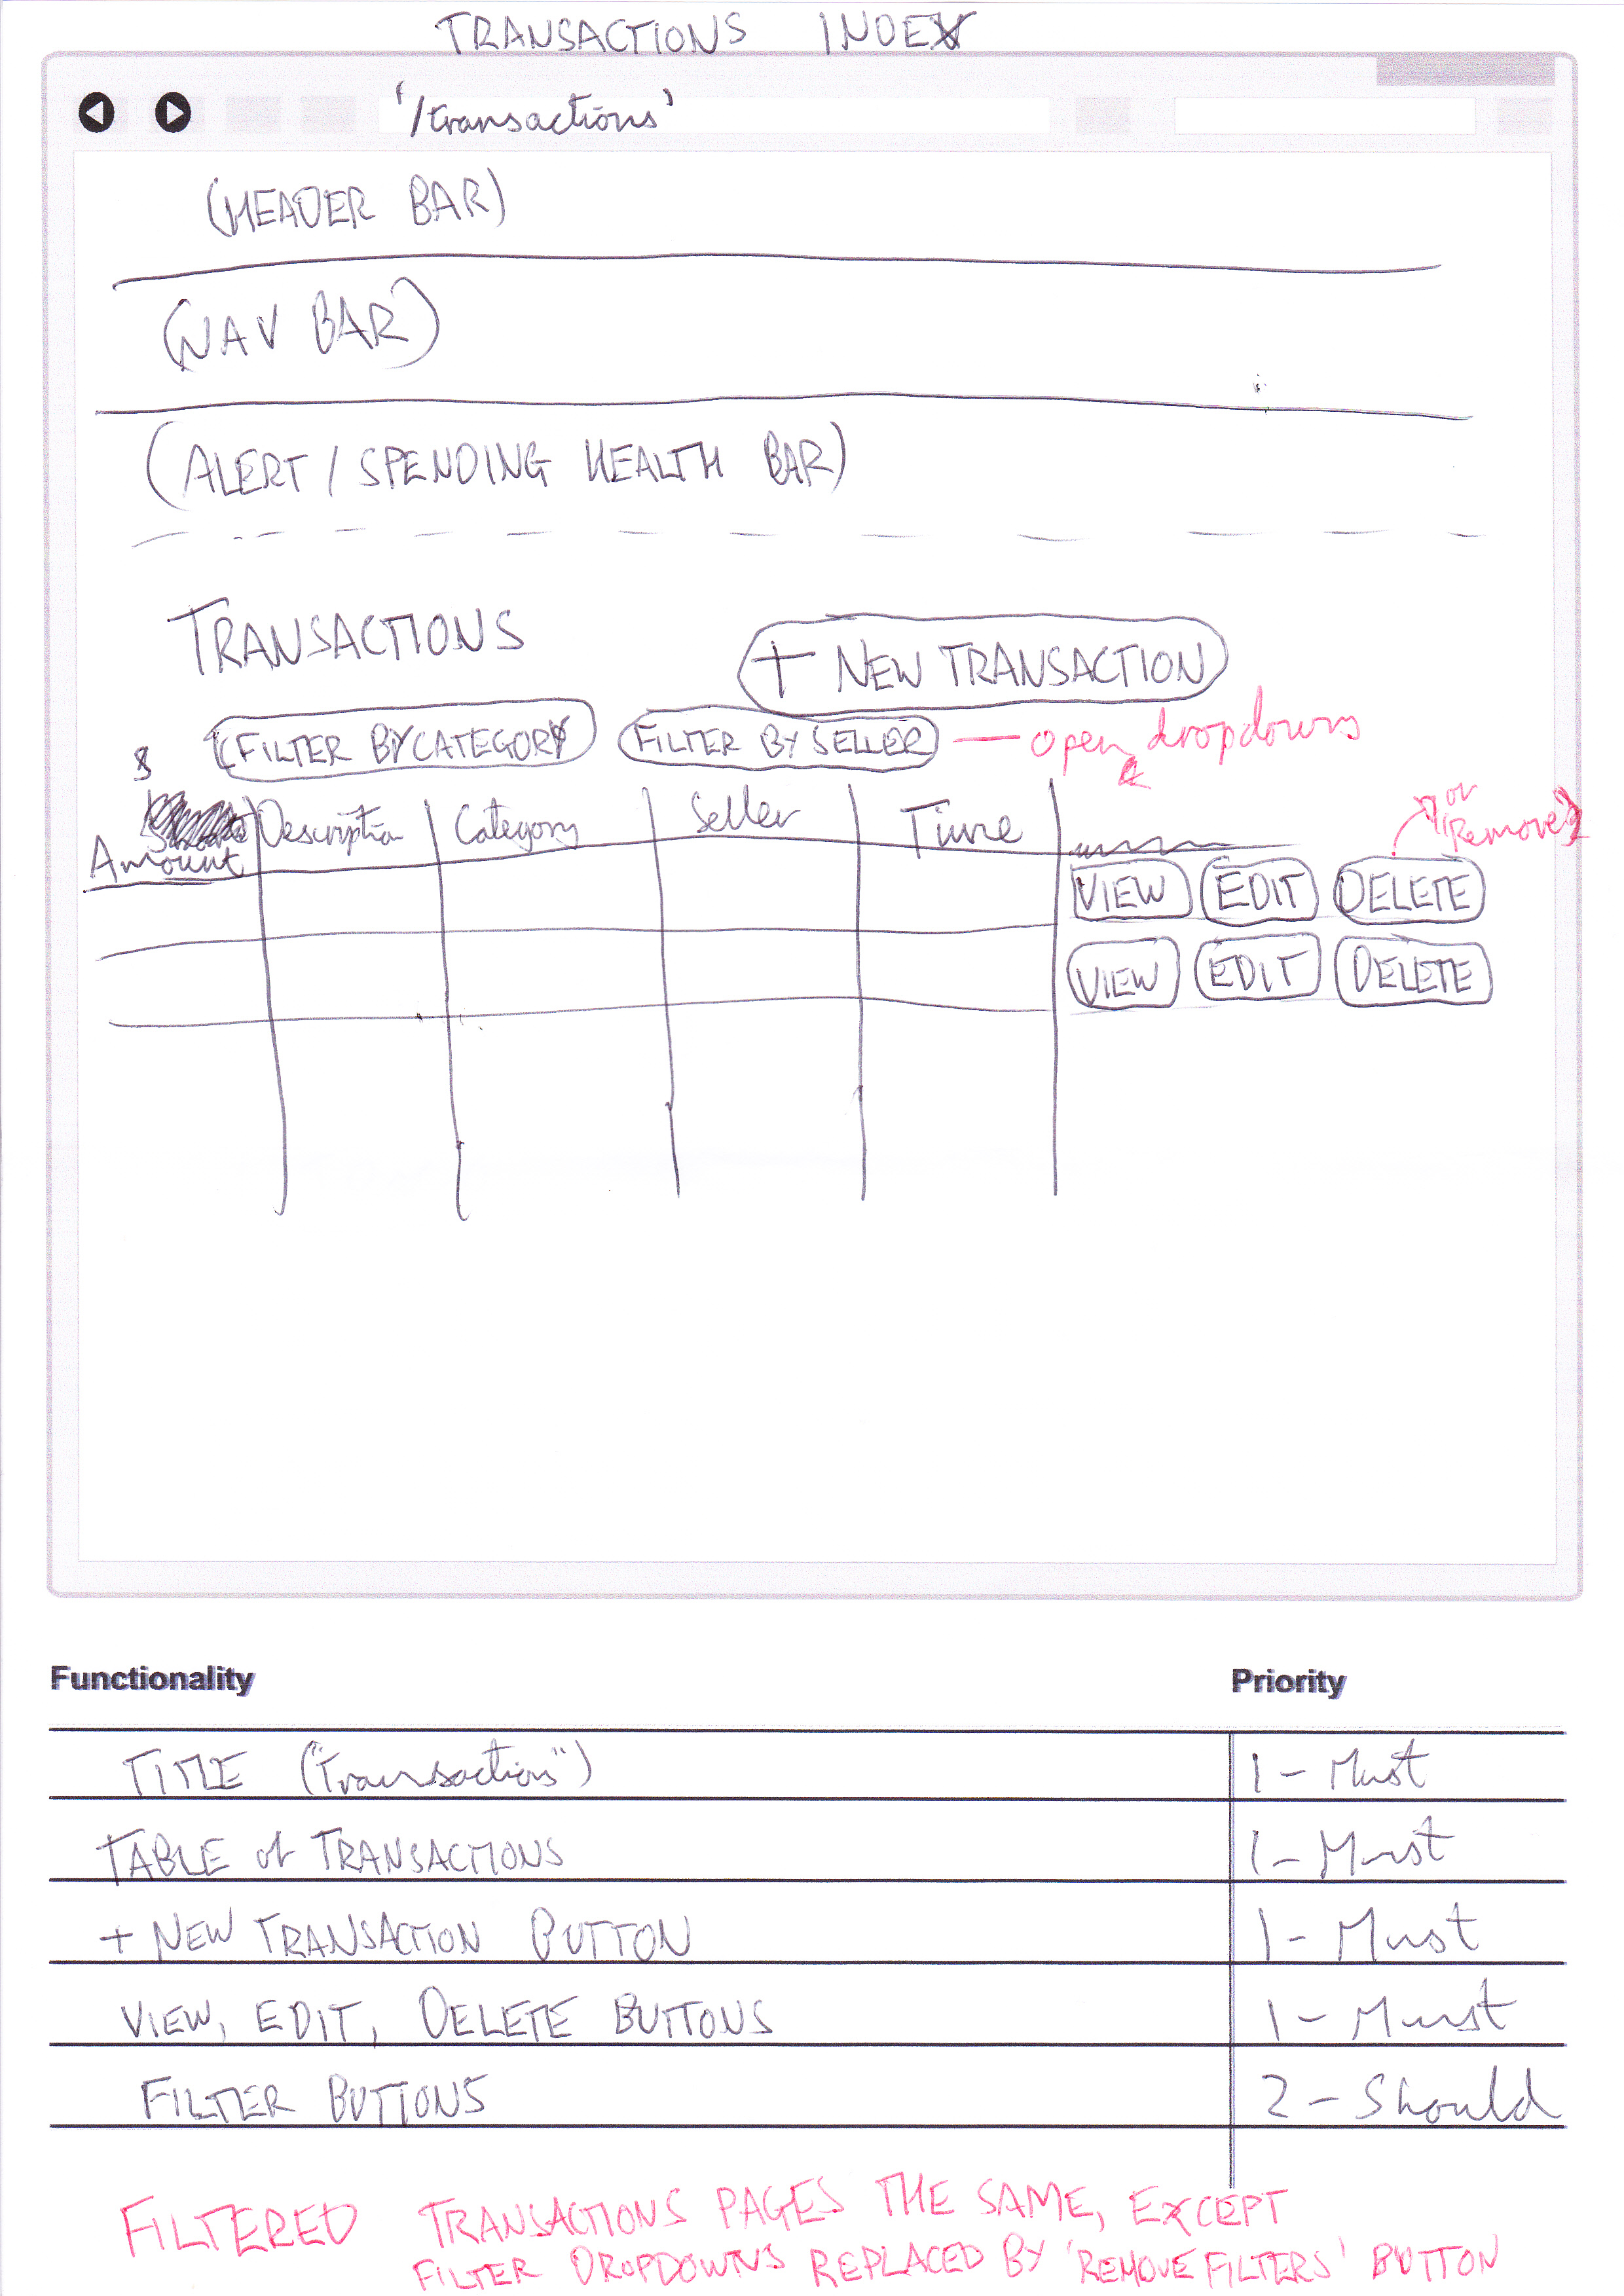 TRANSACTIONS INDEX
'/transactions'
(HEADER BAR)
(NAV BAR)
(ALERT / SPENDING HEALTH BAR)
TRANSACTIONS
+ NEW TRANSACTION
FILTER BY CATEGORY FILTER BY SELLER — open dropdowns
Amount Description Category Seller Time
or Remove?
VIEW EDIT DELETE
VIEW EDIT DELETE
Functionality Priority
TITLE ("Transactions") 1 - Must
TABLE of TRANSACTIONS 1 - Must
+ NEW TRANSACTION BUTTON 1 - Must
VIEW, EDIT, DELETE BUTTONS 1 - Must
FILTER BUTTONS 2 - Should
FILTERED TRANSACTIONS PAGES THE SAME, EXCEPT
FILTER DROPDOWNS REPLACED BY 'REMOVE FILTERS' BUTTON